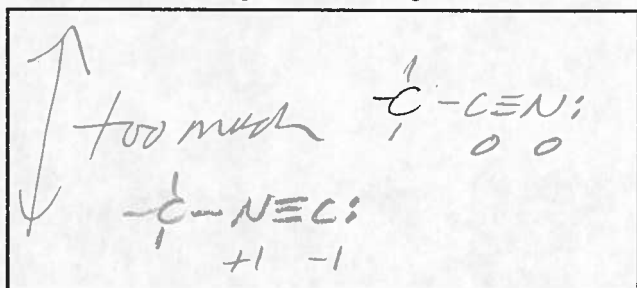 too much
-C-C≡N:
0 0
-C-N≡C:
+1 -1